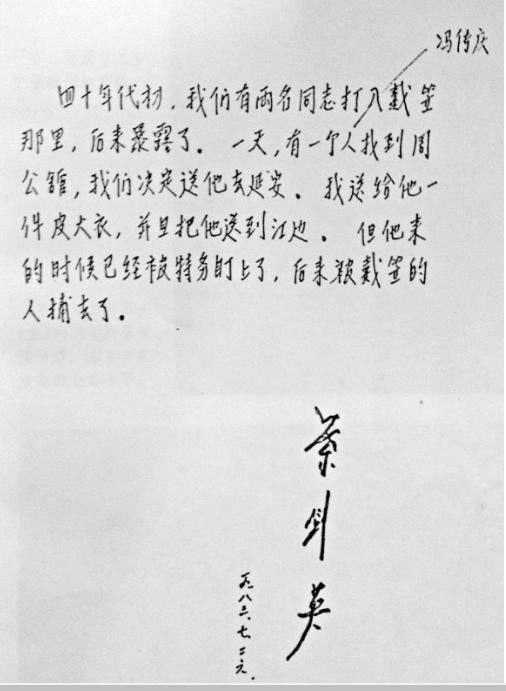 冯传庆
四十年代初，我们有两名同志打入戴笠
那里，后来暴露了。一天，有一个人找到周
公馆，我们决定送他去延安。我送给他一
件皮大衣，并且把他送到江边。但他来
的时候已经被特务盯上了，后来被戴笠的
人捕去了。
叶剑英
一九八三、七、二